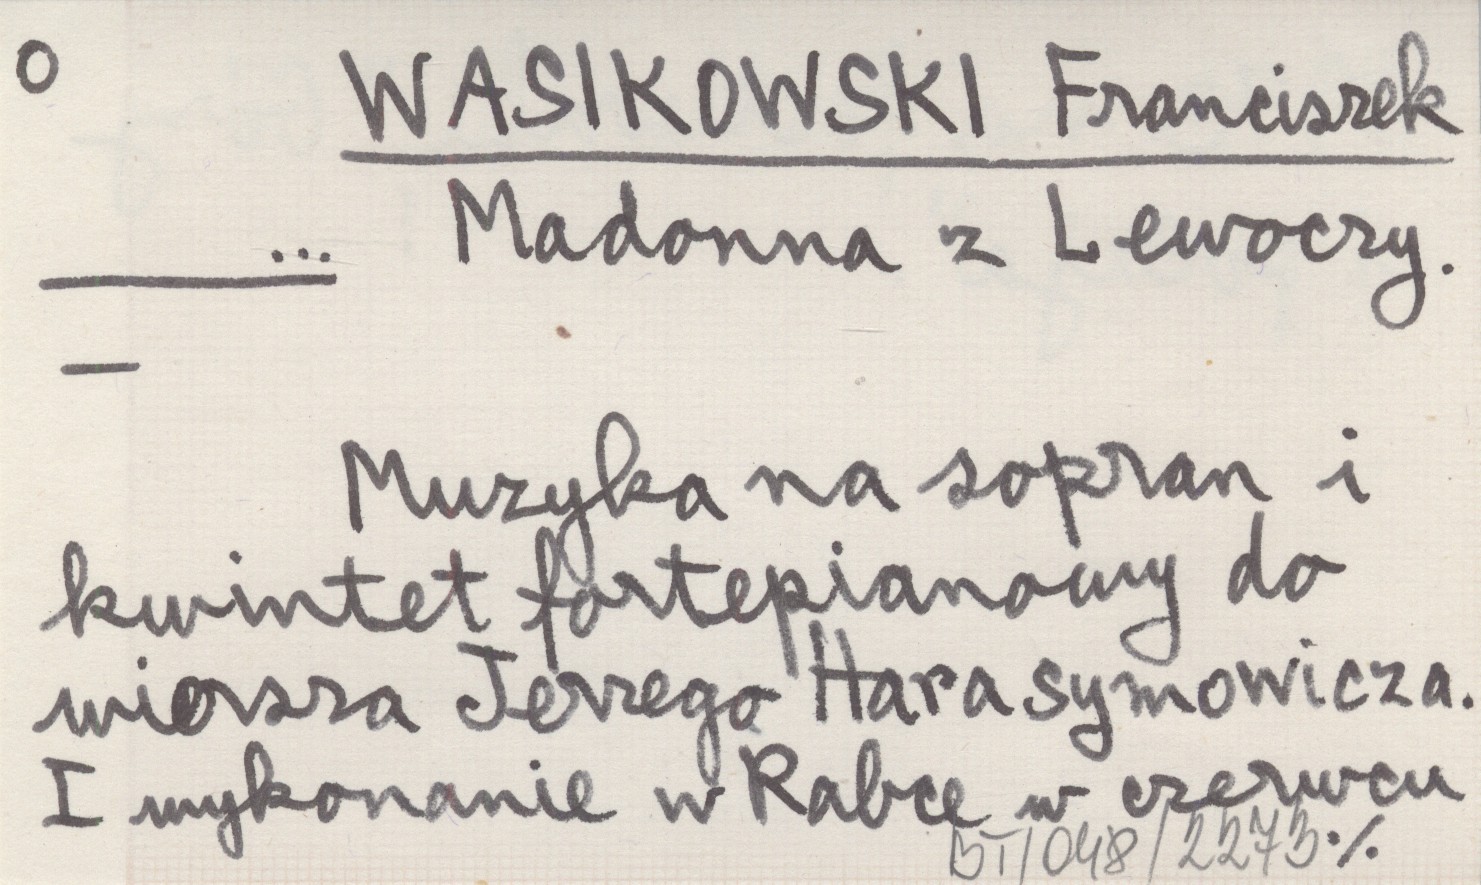 O WASIKOWSKI Franciszek
... Madonna z Lewoczy.
—
Muzyka na sopran i
kwintet fortepianowy do
wiersza Jerzego Harasymowicza.
I wykonanie w Rabce w czerwcu
DT/048/2273 ./.